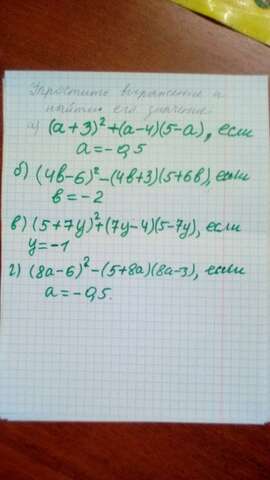 Упростите выражение и
найдите его значение:
а) (a+3)²+(a-4)(5-a), если
a=-0,5
б) (4в-6)²-(4в+3)(5+6в), если
в=-2
в) (5+7y)²+(7y-4)(5-7y), если
y=-1
г) (8a-6)²-(5+8a)(8a-3), если
a=-0,5.